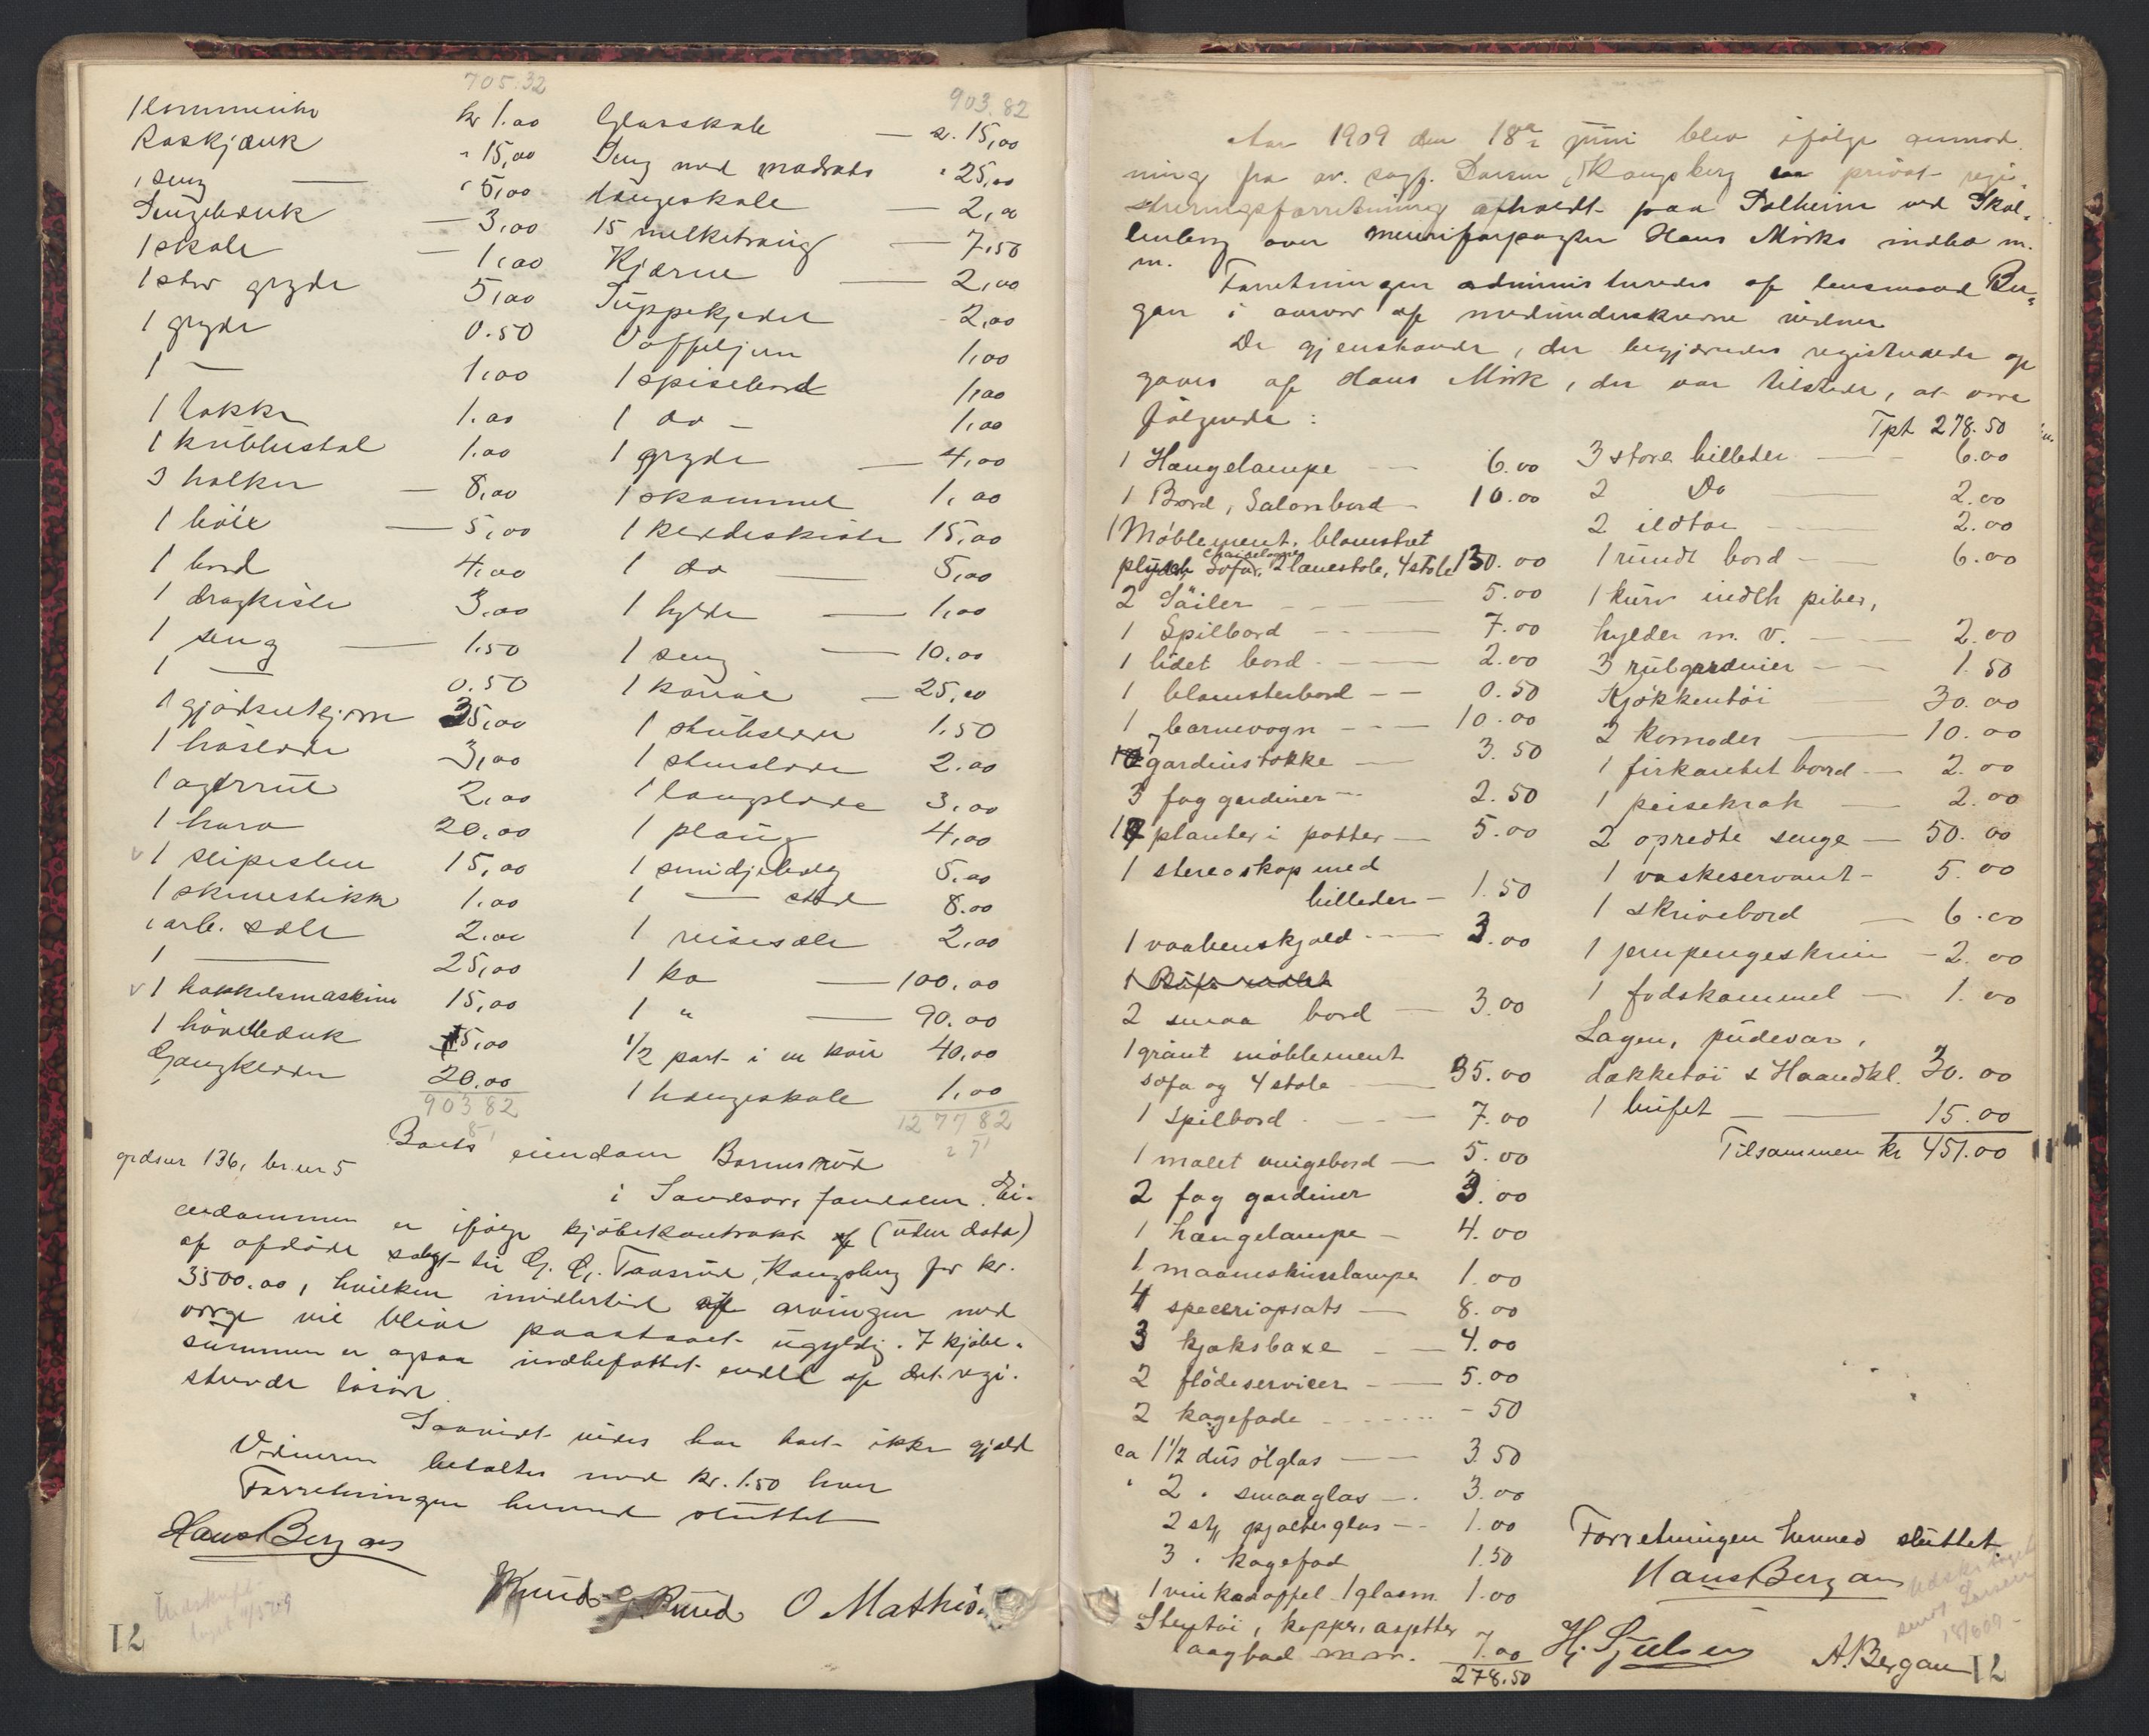 705.32
kr 1.00
Raskjærk " 15,00
1 seng — " 5,00
Sengeklæuk — 3,00
1 skole — 1,00
1 stor gryde 5,00
1 gryde 0.50
1 — 1,00
1 takke 1.00
1 krublestol 1.00
3 holker — 8,00
1 — 5,00
1 bord 4,00
1 dragkiste 3,00
1 seng — 1.50
1 — 0.50
1 gjødselkjerre 35,00
1 høislæde 3,00
1 agerrul 2,00
1 harv 20.00
v 1 slipesten 15,00
1 skinestikke 1.00
1 arb. sele 2.00
1 — 25,00
v 1 hakkelsmaskine 15,00
1 høvelbænk 5,00
Gangklæder 20.00
903 82
903.82
Glasskab — kr. 15,00
Seng med madrats " 25,00
Hængeskab — 2,00
15 melketraug — 7,50
Kjærne — 2,00
Suppekjedel 2,00
Vaffeljern 1,00
1 spisebord 1,00
1 do — 1,00
1 gryde — 4,00
1 skammel 1,00
1 klædeskiste 15,00
1 do — 5,00
1 hylde — 1,00
1 seng — 10,00
1 kariol — 25,00
1 slutslæde 1.50
1 stenslæde 2.00
1 langslæde 3,00
1 ploug 4,00
1 smidjebelg 5.00
1 — sted 8.00
1 reisesele 2,00
1 ko — 100.00
1 " — 90.00
1/2 part i en kvie 40,00
1 hængeskab 1,00
1277 82
Boets eiendom Barmsrud
grdsnr 136, br.nr 5
i Sandsvær Ei-
endommen er ifølge kjøbekontrakt (uten dato)
af afdøde solgt til G. G. Taasrud, Kongsberg for kr.
3500.00, hvilken imidlertid af arvingen med
værge vil blive paastaaet ugyldig. I kjøbe-
summen er ogsaa indbefattet endel af det regi-
strerede løsøre.
Saavidt vides har boet ikke gjæld
Vidnerne betaltes med kr. 1.50 hver
Forretningen hermed sluttet
Hans Bergan
Knud G. Ruud O Mathis
Udskrift
12
Aar 1909 den 18de juni blev ifølge anmod
ning fra ov. sagf. Larsen, Kongsberg en privat regi-
streringsforretning afholdt paa Solheim ved Skol-
lenborg over meieriforpagter Hans Mørks indbo m.
m.
Forretningen administreredes af lensmand Ber-
gan i overvær af medunderskrevne vidner
De gjenstande, der begjæredes registrerede op
gaves af Hans Mørk, der var tilstede, at være
følgende :
1 Hængelampe — 6.00
1 Bord, Salonbord — 10.00
1 Møblement, blomstret
plysch chaiselogne Sofa, 2 lænestole, 4 stole 130.00
2 Søiler — 5.00
1 Spilbord — 7.00
1 lidet bord — 2.00
1 blomsterbord — 0.50
1 barnevogn — 10.00
7 gardinstokke — 3.50
3 fag gardiner — 2.50
planter i potter — 5.00
1 stereoskop med
billeder — 1.50
1 vaabenskjold — 3.00
2 smaa bord — 3.00
1 grønt møblement
sofa og 4 stole — 35.00
1 Spilbord — 7.00
1 malet vinigsbord — 5.00
2 fag gardiner 3.00
1 hængelampe — 4.00
1 maaneskinslampe 1.00
4 speceriopsats — 8.00
3 kjæksboxe — 4.00
2 flødeserviser — 5.00
2 kagefade — - 50
ca 1 1/2 dus ølglas — 3.50
" 2 " smaaglas — 3.00
2 stk pjolterglas — 1.00
3 " kagefad 1.50
1 vinkaraffel 1 glasm. 1.00
Stentøi, kopper, asjetter
aagfad m.m. 7.00
278.50
Tpt 278.50
3 store billeder — 6.00
2 Do — 2.00
2 ildtøi — 2.00
1 rundt bord — 6.00
1 kurv indeh piber,
hylder m. v. — 2.00
3 rulgardiner — 1.50
Kjøkkentøi — 30.00
2 komoder — 10.00
1 firkantet bord — 2.00
1 peisekrak — 2.00
2 opredte senge — 50.00
1 vaskeservant — 5.00
1 skrivebord — 6.00
1 jernpengeskrin — 2.00
1 fodskammel — 1.00
Lagen, pudevar,
dækketøi & Haandkl. 30.00
1 bufet — 15.00
Tilsammen kr 451.00
Forretningen hermed sluttet
Hans Bergan
Hj. Sjulsen
A. Bergan
12